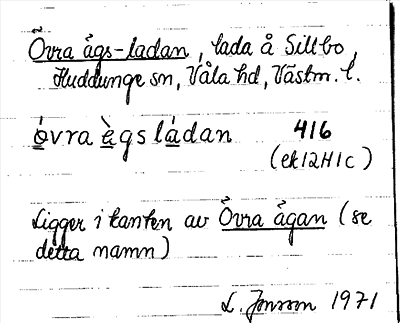 Övra ågs-ladan, lada å Sillbo,
Huddunge sn, Våla hd, Västm. l.
òvra ègsládan 416
(ek 12H1c)
Ligger i kanten av Övra ågan (se
detta namn)
L. Jonsson 1971